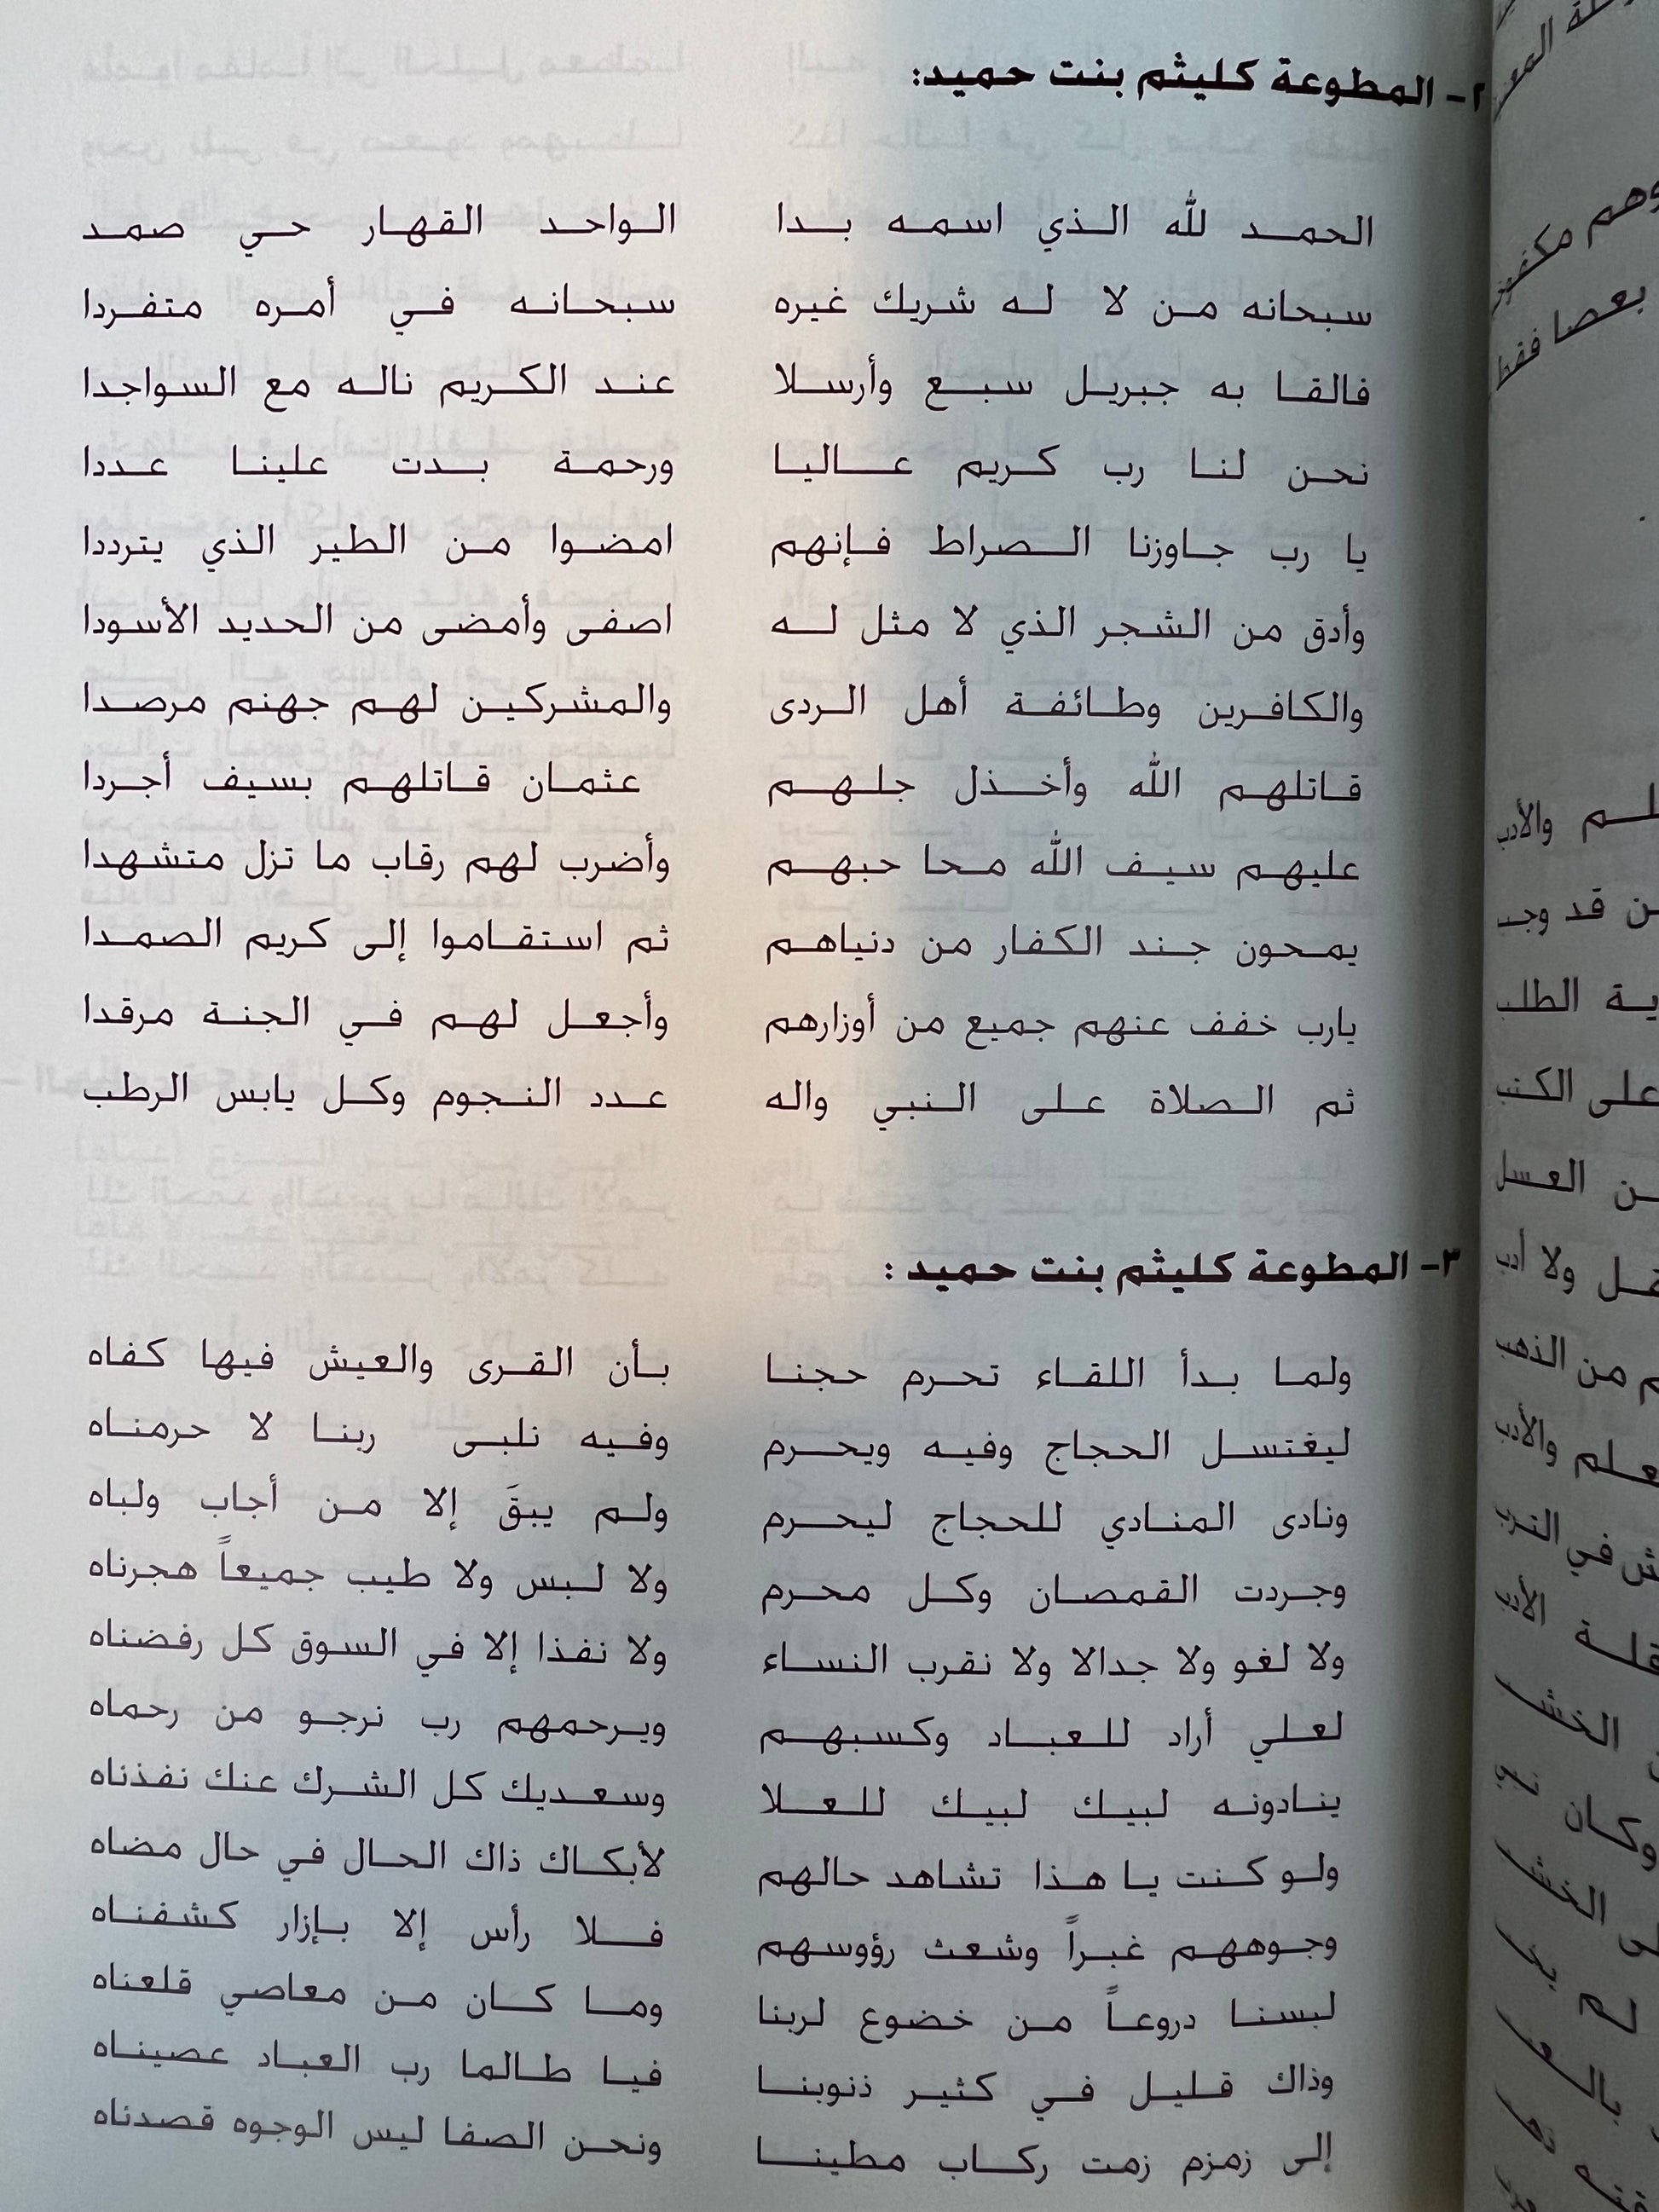 ٢- المطوعة كليثم بنت حميد:
الحمد لله الذي اسمه بدا الواحد القهار حي صمد
سبحانه من لا له شريك غيره سبحانه في أمره متفردا
فالقا به جبريل سبع وأرسلا عند الكريم ناله مع السواجدا
نحن لنا رب كريم عاليا ورحمة بدت علينا عددا
يا رب جاوزنا الصراط فإنهم امضوا من الطير الذي يترددا
وأدق من الشجر الذي لا مثل له اصفى وأمضى من الحديد الأسودا
والكافرين وطائفة أهل الردى والمشركين لهم جهنم مرصدا
قاتلهم الله وأخذل جلهم عثمان قاتلهم بسيف أجردا
عليهم سيف الله محا حبهم وأضرب لهم رقاب ما تزل متشهدا
يمحون جند الكفار من دنياهم ثم استقاموا إلى كريم الصمدا
يارب خفف عنهم جميع من أوزارهم وأجعل لهم في الجنة مرقدا
ثم الصلاة على النبي واله عدد النجوم وكل يابس الرطب
٣- المطوعة كليثم بنت حميد :
ولما بدأ اللقاء تحرم حجنا بأن القرى والعيش فيها كفاه
ليغتسل الحجاج وفيه ويحرم وفيه نلبى ربنا لا حرمناه
ونادى المنادي للحجاج ليحرم ولم يبقَ إلا من أجاب ولباه
وجردت القمصان وكل محرم ولا لبس ولا طيب جميعاً هجرناه
ولا لغو ولا جدالا ولا نقرب النساء ولا نفذا إلا في السوق كل رفضناه
لعلي أراد للعباد وكسبهم ويرحمهم رب نرجو من رحماه
ينادونه لبيك لبيك للعلا وسعديك كل الشرك عنك نفذناه
ولو كنت يا هذا تشاهد حالهم لأبكاك ذاك الحال في حال مضاه
وجوههم غبراً وشعث رؤوسهم فلا رأس إلا بإزار كشفناه
لبسنا دروعاً من خضوع لربنا وما كان من معاصي قلعناه
وذاك قليل في كثير ذنوبنا فيا طالما رب العباد عصيناه
إلى زمزم زمت ركاب مطينا ونحن الصفا ليس الوجوه قصدناه